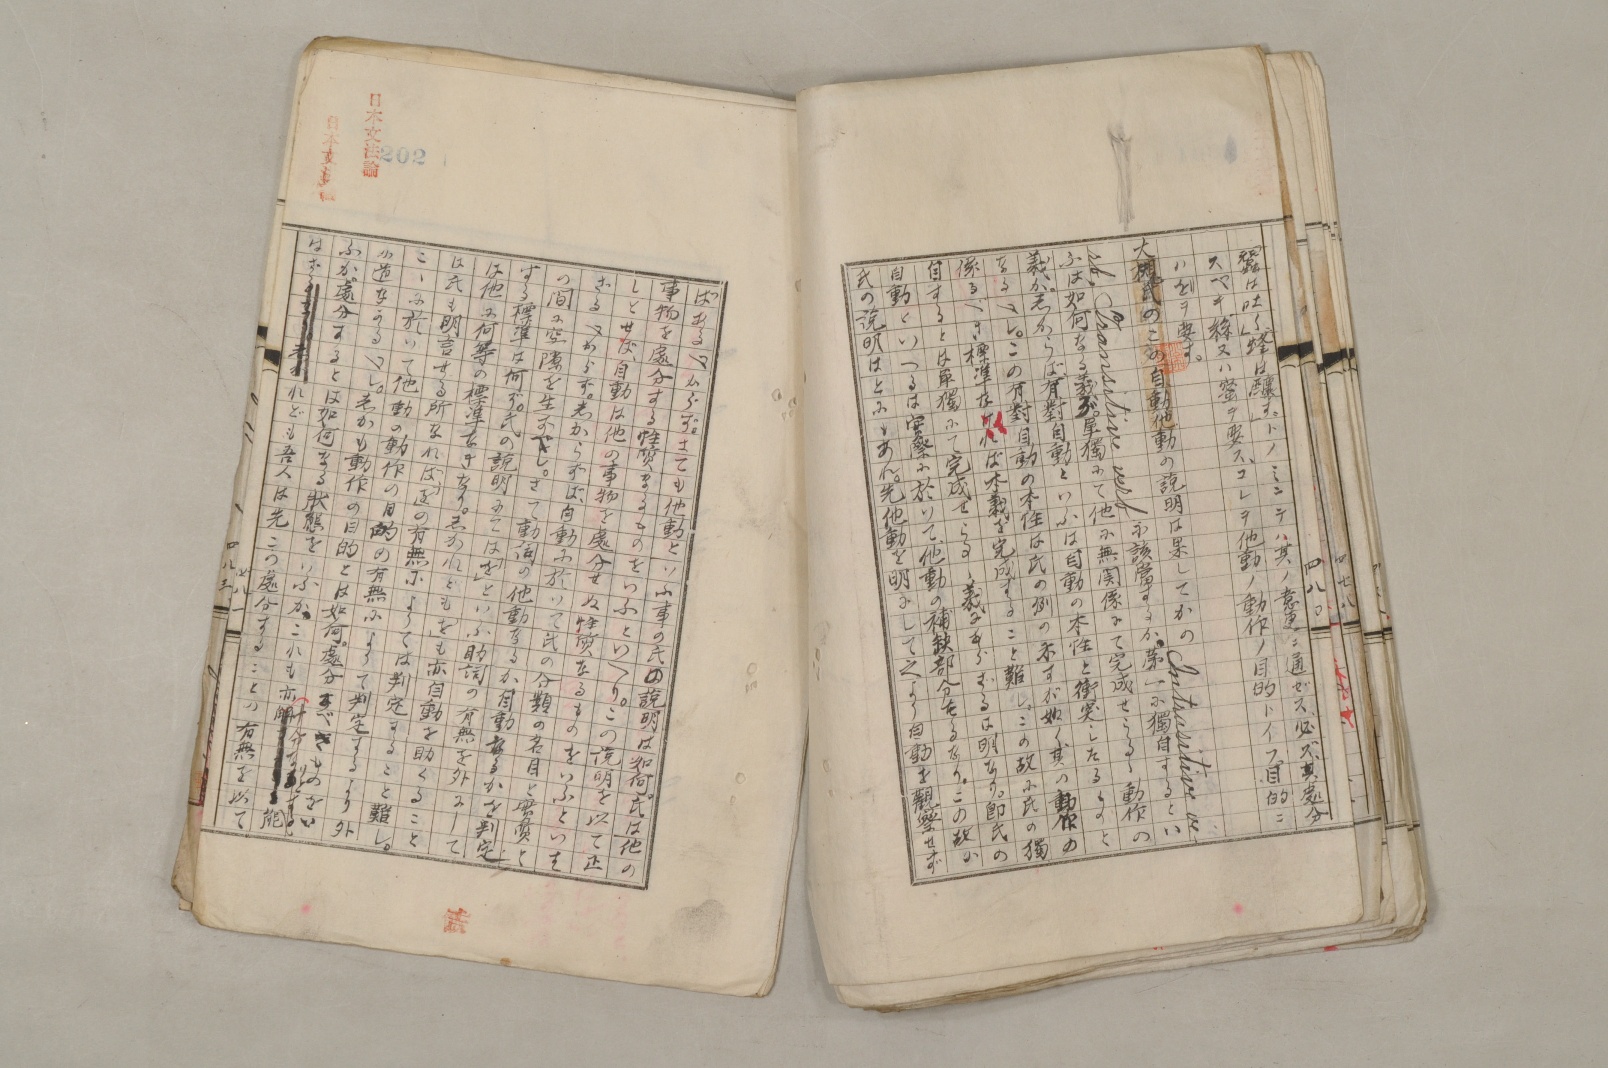 「蠶は吐く」「蜂は釀す」トノミニテハ其ノ意更ニ通ゼズ、必ズ其處分
スベキ「絲」又ハ「蜜」ヲ要ス、コレヲ他動ノ動作ノ目的トイフ目的ニ
ハ「を」ヲ要す。
大槻氏のこの自動他動の說明は果してかの Intransitive ve
rb. Transitive verb に該當するか。第一に獨自するとい
ふは如何なる義ぞ。單獨にて他に無關係にて完成せらるゝ動作の
義か。若からば有對自動といふは自動の本性と衝突したるものと
なるべし。この有對自動の本性は氏の例の示すが如く其の動作の
係るべき標準なければ本義を完成すること難し。この故に氏の獨
自するとは單獨にて完成せらるゝ義にあらざるは明なり。卽氏の
自動といへるは實際に於いて、他動の補缺部分なるなり。この故に
氏の說明はとにもあれ、先他動を明にして之より自動を觀察せず
ばあるべからず。さても他動といふ事の氏の說明は如何。氏は他の
事物を處分する性質なるものをいふといへり。この說明を以て正
しとせば自動は他の事物を處分せぬ性質なるものをいふといは
ざるべからず。しからずば、自動に於いて氏の分類の名目と實質と
の間に空隙を生ずべし。さて動詞の他動なるか自動なるかを判定
する標準は何ぞ。氏の說明にては「を」といふ助詞の有無を外にして
は他に何等の標準なきなり。されどもをも亦自動を助くること
は氏も明言せる所なれば「を」の有無によりては判定すること難し。
こゝに於いて他動の動作の目的の有無によりて判定するより外
に道なかるべし。若かも動作の目的とは如何。處分すべきものをい
ふか。處分するとは如何なる狀態をいふか。これも亦
はざる されども吾人は先この處分することの有無を以て
四八〇
四七八
四八一
四八三
日本文法論
日本文法論
202